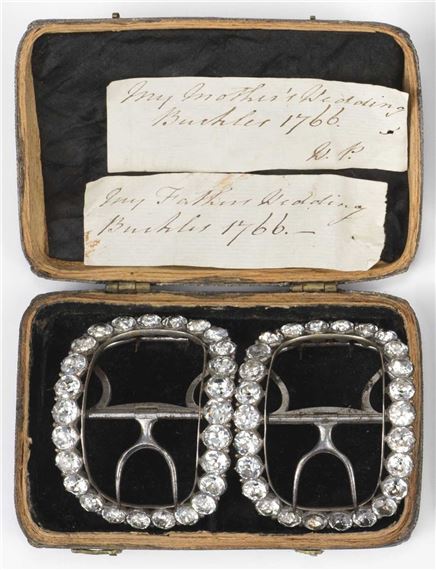 My Mother's Wedding
Buckles 1766.
W. P.
My Fathers Wedding
Buckles 1766.—